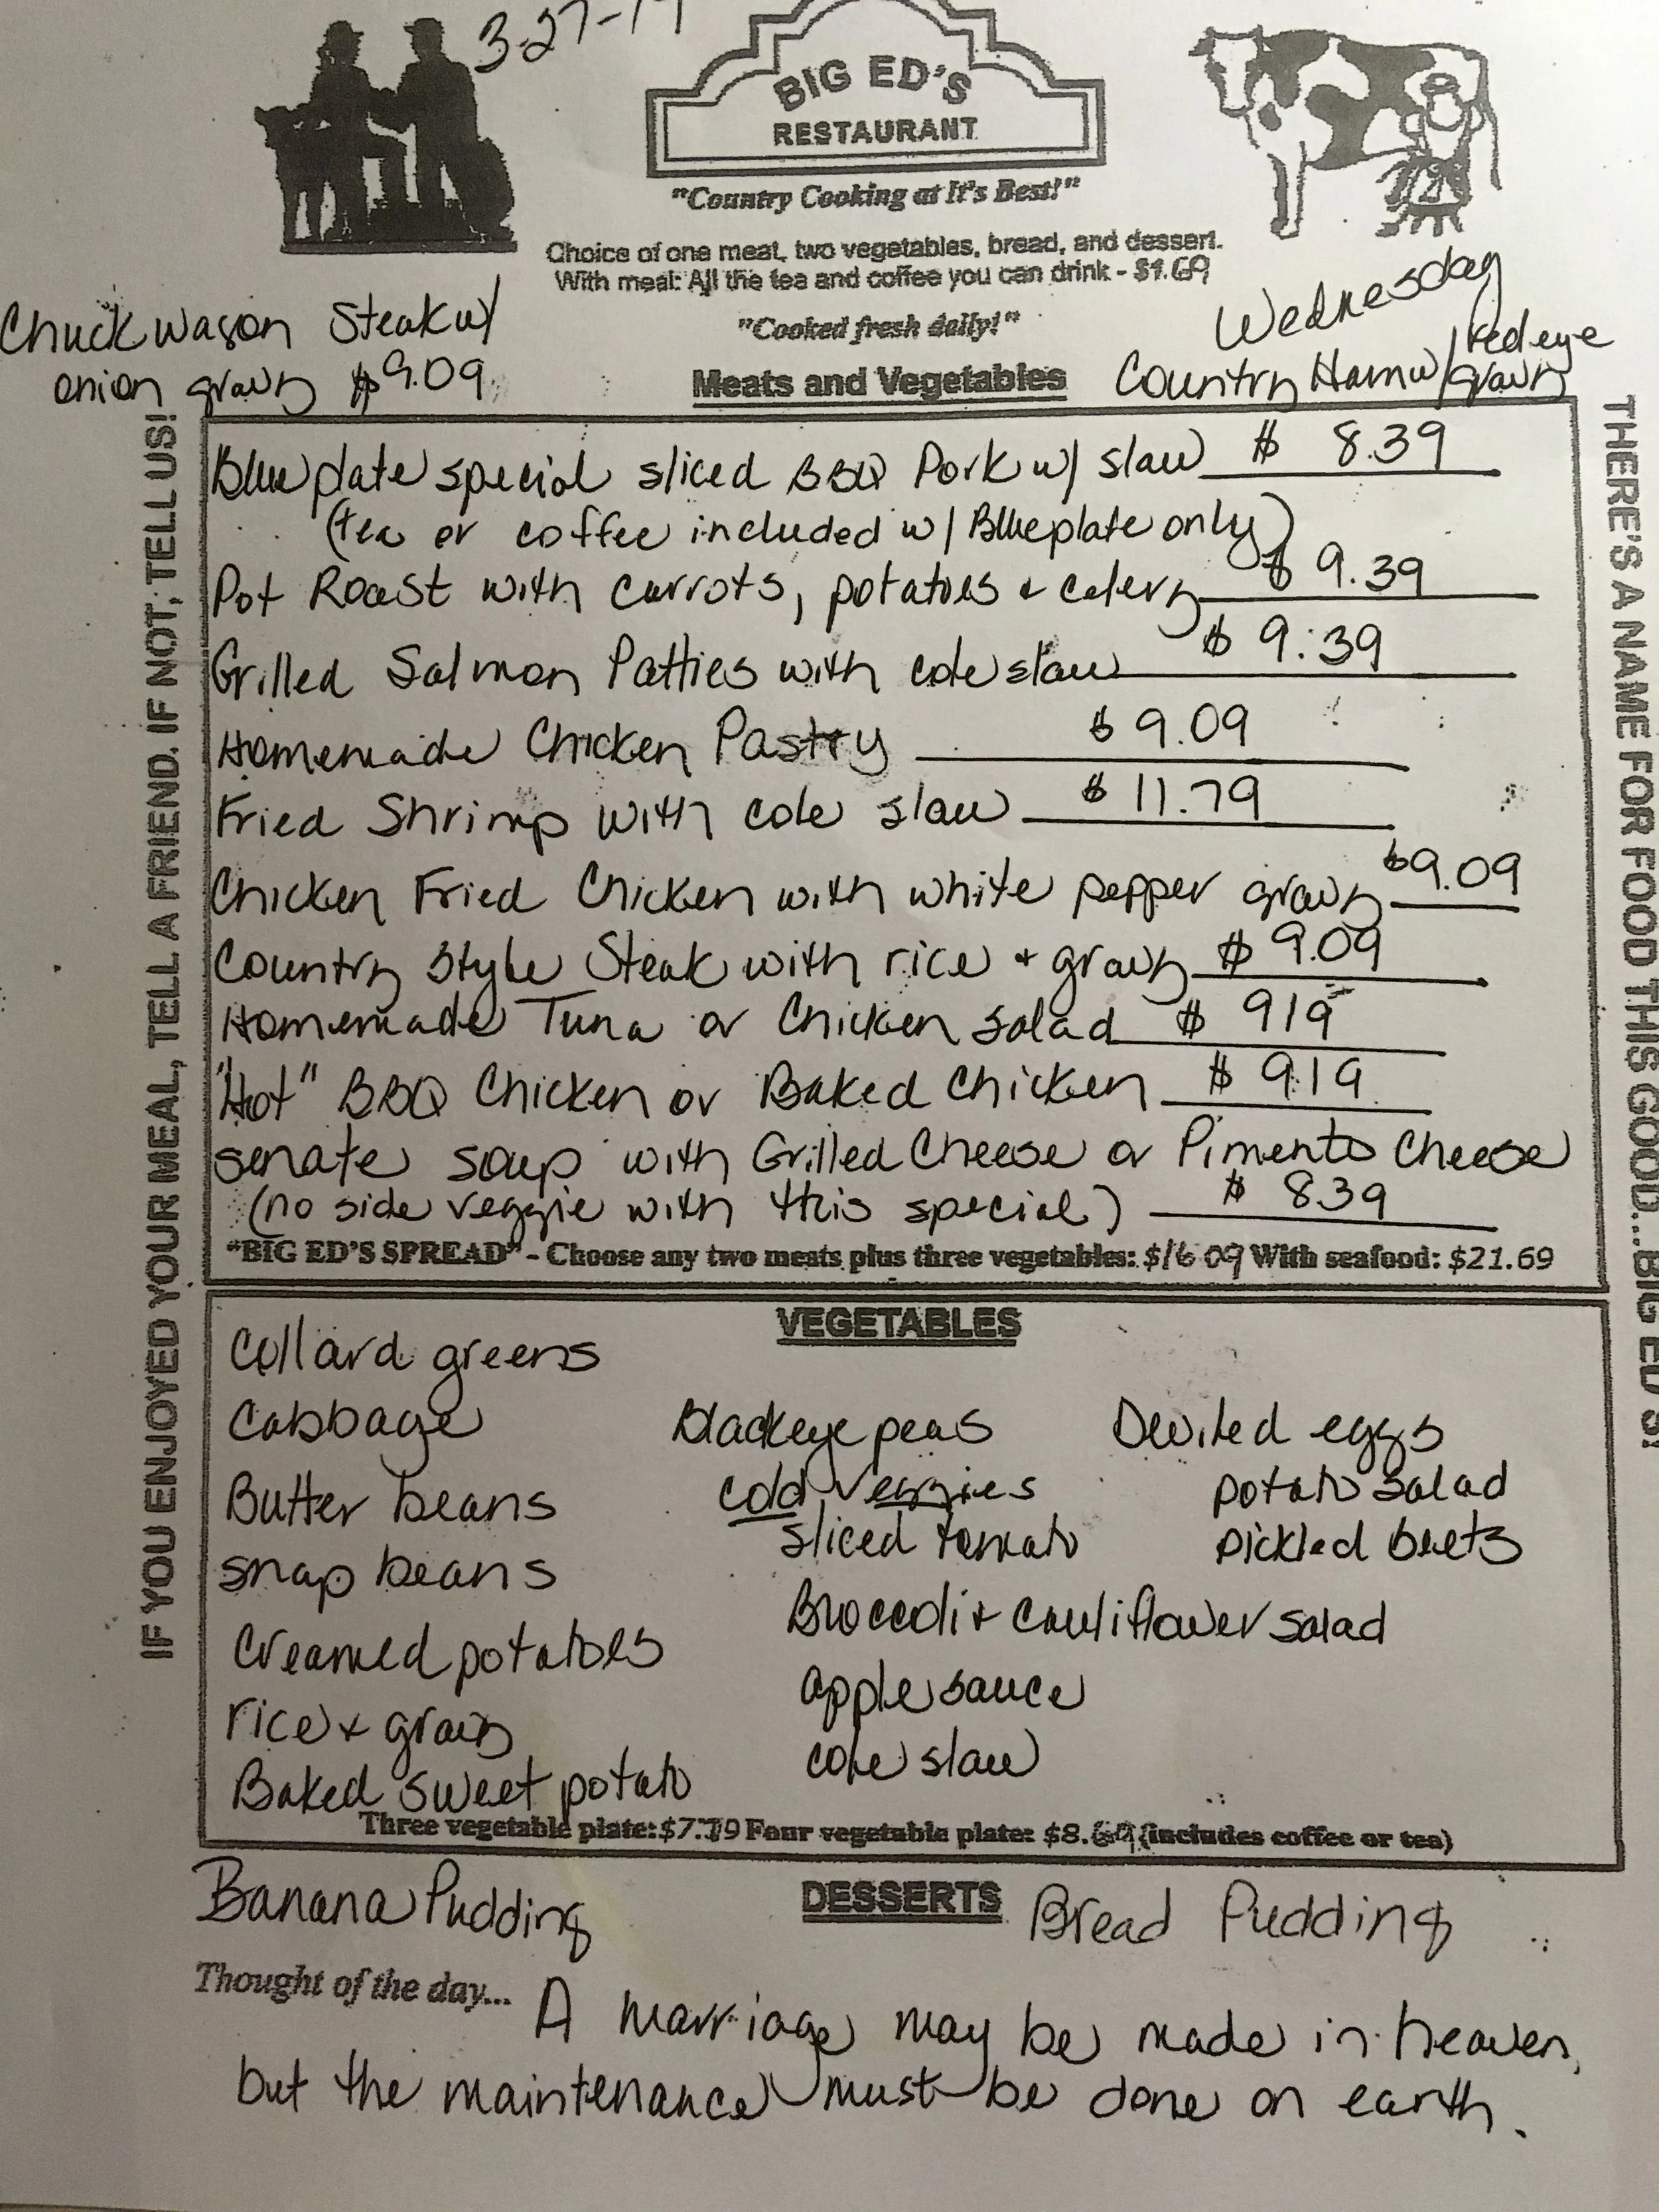 3-27-19
BIG ED'S
RESTAURANT
"Country Cooking at It's Best!"
Choice of one meat, two vegetables, bread, and dessert.
With meal: All the tea and coffee you can drink - $1.69
"Cooked fresh daily!"
Wednesday
Chuckwagon Steak w/
onion gravy $9.09
Meats and Vegetables
Country Ham w/ red eye
gravy
IF YOU ENJOYED YOUR MEAL, TELL A FRIEND. IF NOT, TELL US!
THERE'S A NAME FOR FOOD THIS GOOD...BIG ED'S!
Blue plate special sliced BBQ Pork w/ slaw $ 8.39
(tea or coffee included w/ Blueplate only)
Pot Roast with carrots, potatoes & celery $ 9.39
Grilled Salmon Patties with cole slaw $ 9.39
Homemade Chicken Pastry $ 9.09
Fried Shrimp with cole slaw $ 11.79
Chicken Fried Chicken with white pepper gravy $9.09
Country Style Steak with rice & gravy $ 9.09
Homemade Tuna or Chicken Salad $ 919
"Hot" BBQ Chicken or Baked Chicken $ 9.19
Senate soup with Grilled Cheese or Pimento Cheese
(no side veggie with this special) $ 839
"BIG ED'S SPREAD" - Choose any two meats plus three vegetables: $16.09 With seafood: $21.69
VEGETABLES
Collard greens
Cabbage
Butter beans
snap beans
Creamed potatoes
rice & gravy
Baked sweet potato
Blackeye peas
cold veggies
sliced tomato
Broccoli & Cauliflower salad
apple sauce
cole slaw
Deviled eggs
potato salad
pickled beets
Three vegetable plate: $7.79 Four vegetable plate: $8.69 (includes coffee or tea)
DESSERTS
Banana Pudding
Bread Pudding
Thought of the day... A marriage may be made in heaven,
but the maintenance must be done on earth.